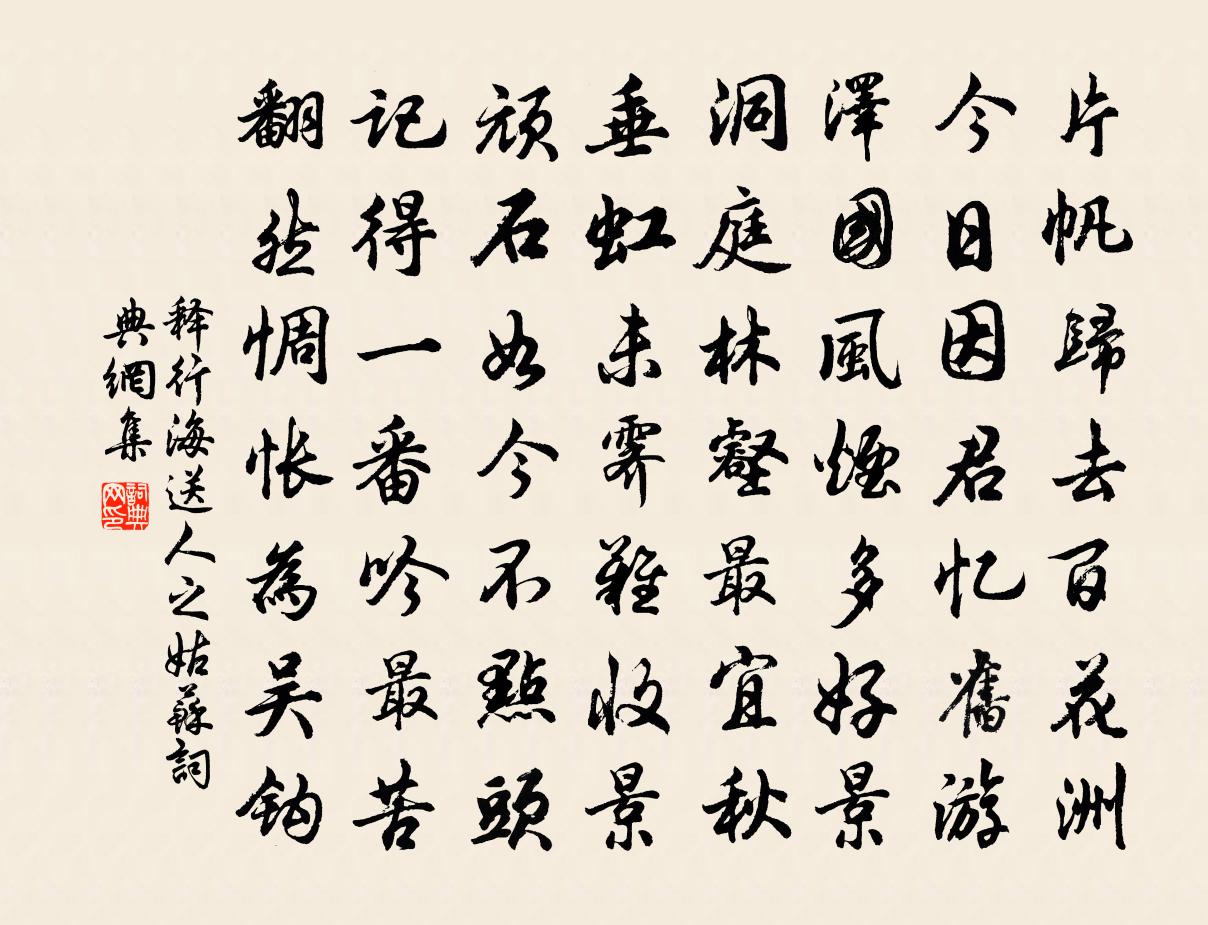 片帆歸去百花洲
今日因君忆舊游
澤國風煙多好景
洞庭林壑最宜秋
垂虹未霽難收景
頑石如今不點頭
記得一番吟最苦
翻然惆悵為吴鈎
释行海送人之姑蘇詞
典網集
詞典网印